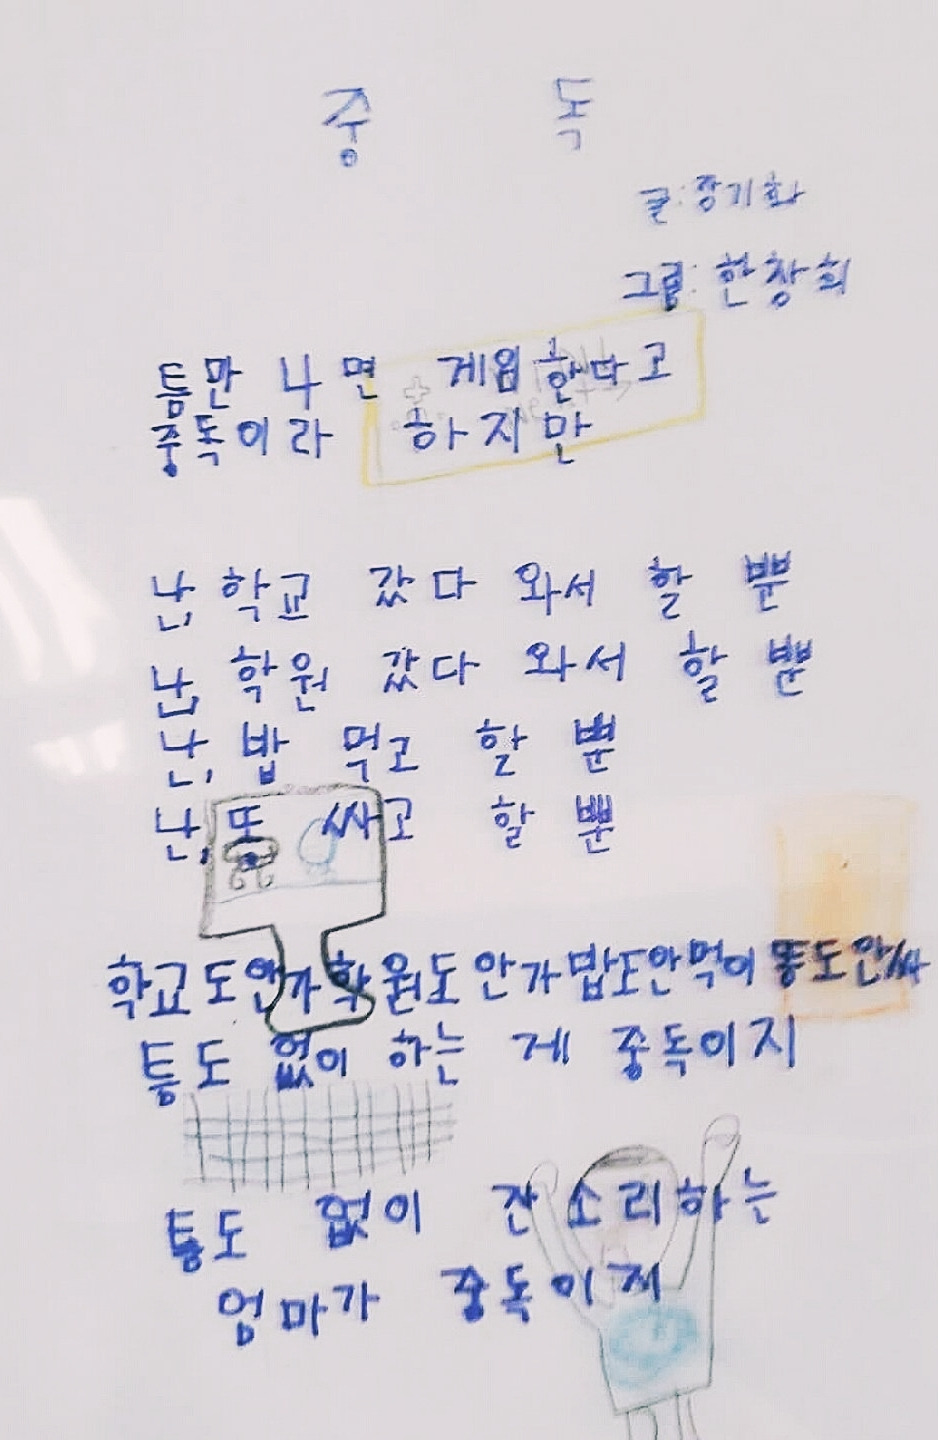 중 독
글: 장기화
그림: 한창희
틈만 나면 게임한다고
중독이라 하지만
난, 학교 갔다 와서 할 뿐
난, 학원 갔다 와서 할 뿐
난, 밥 먹고 할 뿐
난, 또 싸고 할 뿐
학교도 안가 학원도 안가 밥도 안먹어 똥도 안싸
틈도 없이 하는 게 중독이지
틈도 없이 잔소리하는
엄마가 중독이지